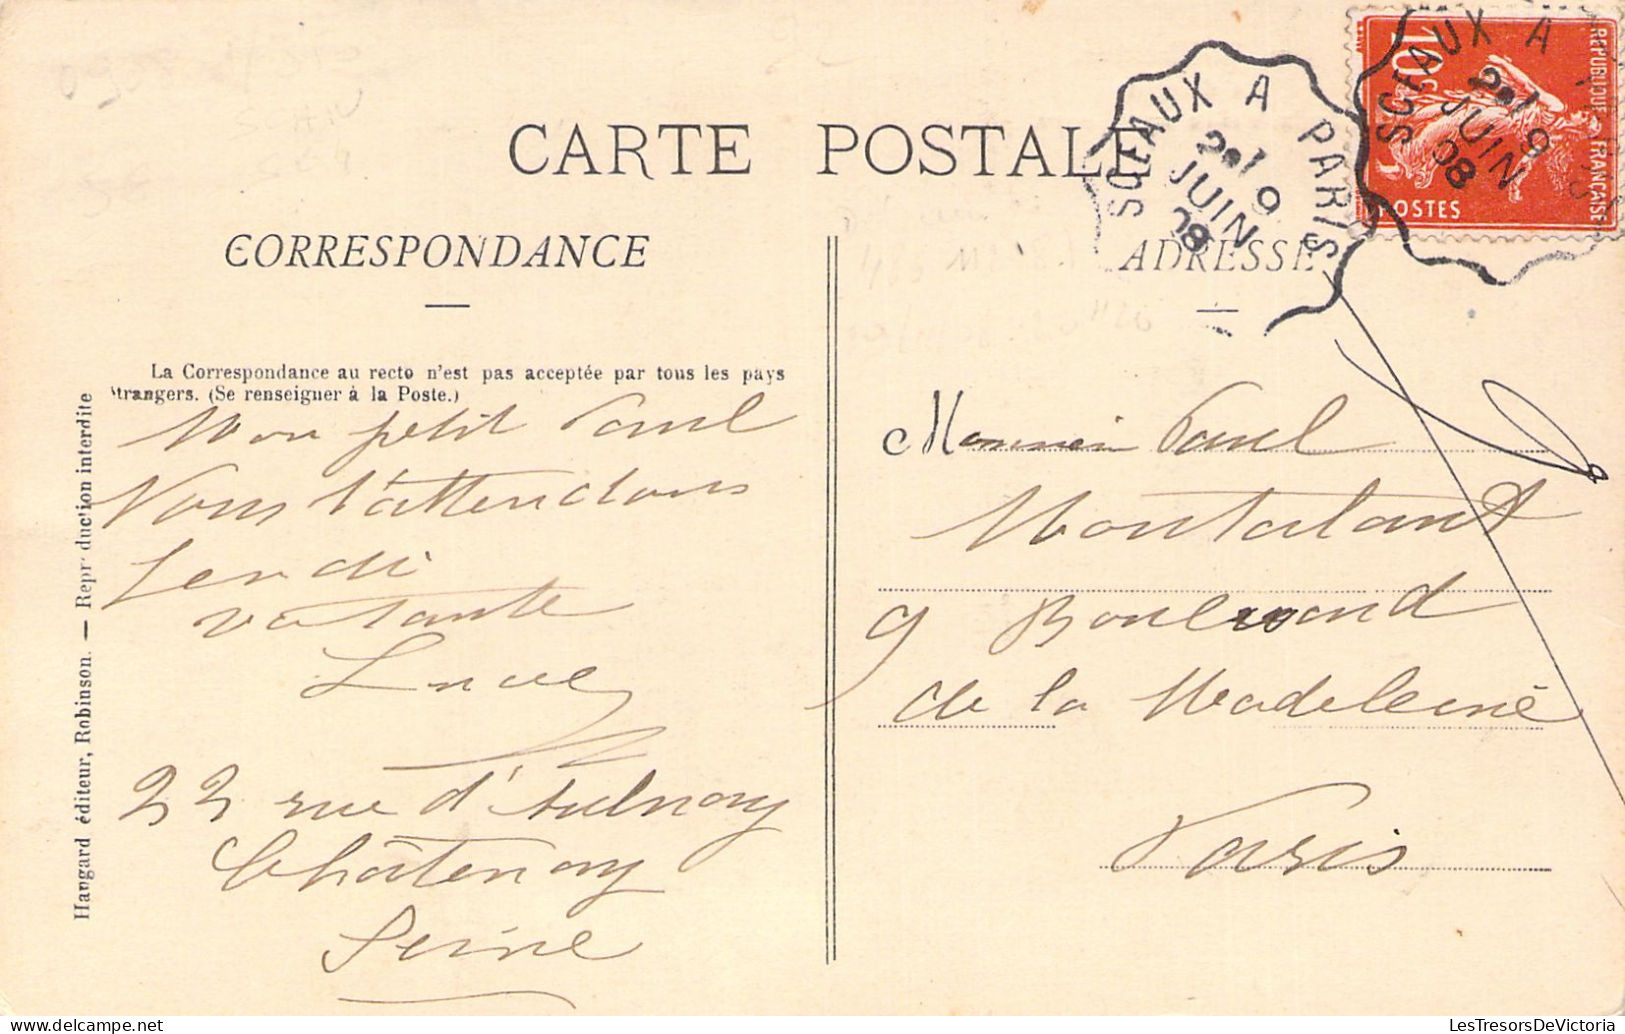 CARTE POSTALE
CORRESPONDANCE
La Correspondance au recto n'est pas acceptée par tous les pays
étrangers. (Se renseigner à la Poste.)
Mon petit Paul
Nous t'attendons
Jeudi
ta tante
22 rue d'Aulnay
Châtenay
Seine
Hangard éditeur, Robinson. — Reproduction interdite
ADRESSE
Monsieur Paul
Montalant
9 Boulevard
de la Madeleine
Paris
SCEAUX A PARIS
2e/ 9
JUIN
08
REPUBLIQUE FRANÇAISE
10c
POSTES
SCEAUX A PARIS
2e/ 9
JUIN
08
LesTresorsDeVictoria.com